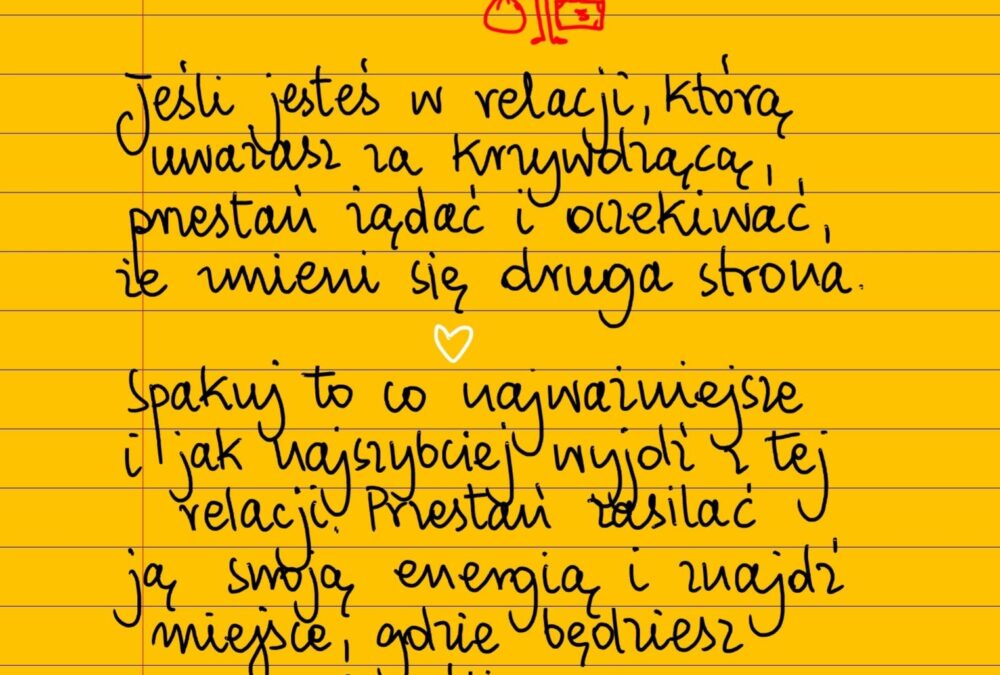 Jeśli jesteś w relacji, którą
uważasz za krzywdzącą,
przestań żądać i oczekiwać,
że zmieni się druga strona.
Spakuj to co najważniejsze
i jak najszybciej wyjdź z tej
relacji. Przestań zasilać
ją swoją energią i znajdź
miejsce, gdzie będziesz